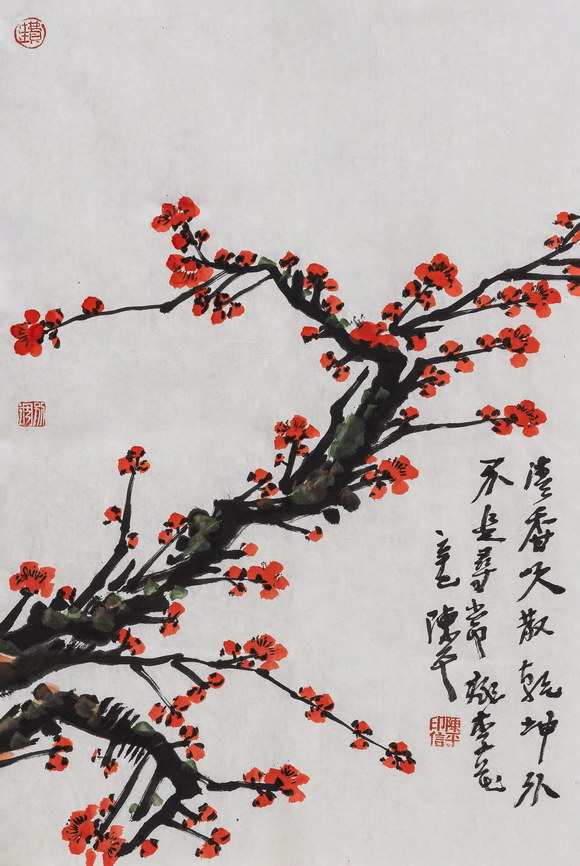 清香吹散乾坤外
不是尋常桃李花
陳平
陳平
印信